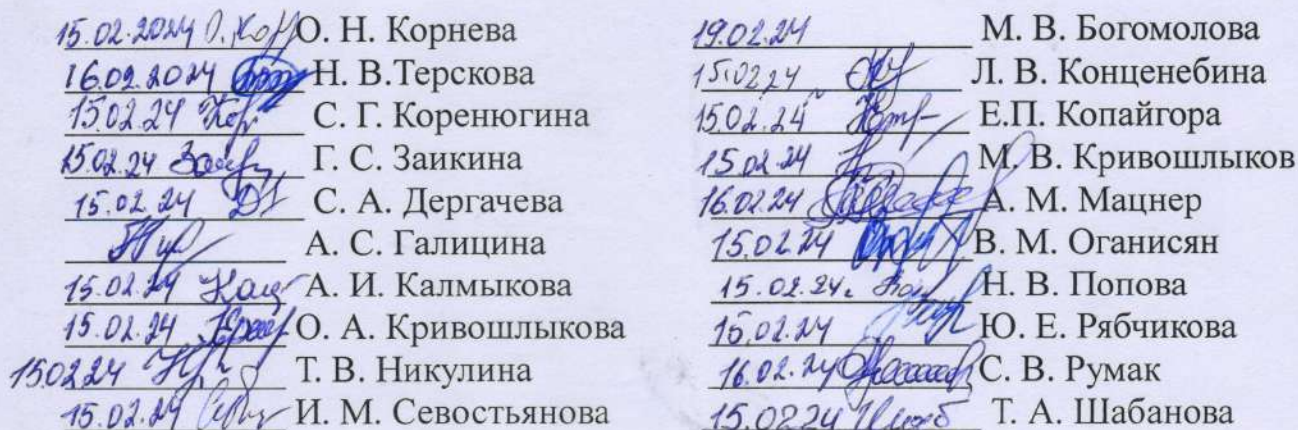 15.02.2024 О. Н. Корнева
16.02.2024 Н. В.Терскова
15.02.24 С. Г. Коренюгина
15.02.24 Г. С. Заикина
15.02.24 С. А. Дергачева
А. С. Галицина
15.02.24 А. И. Калмыкова
15.02.24 О. А. Кривошлыкова
15.02.24 Т. В. Никулина
15.02.24 И. М. Севостьянова
19.02.24 М. В. Богомолова
15.02.24 Л. В. Конценебина
15.02.24 Е.П. Копайгора
15.02.24 М. В. Кривошлыков
16.02.24 А. М. Мацнер
15.02.24 В. М. Оганисян
15.02.24г. Н. В. Попова
15.02.24 Ю. Е. Рябчикова
16.02.24 С. В. Румак
15.02.24 Т. А. Шабанова